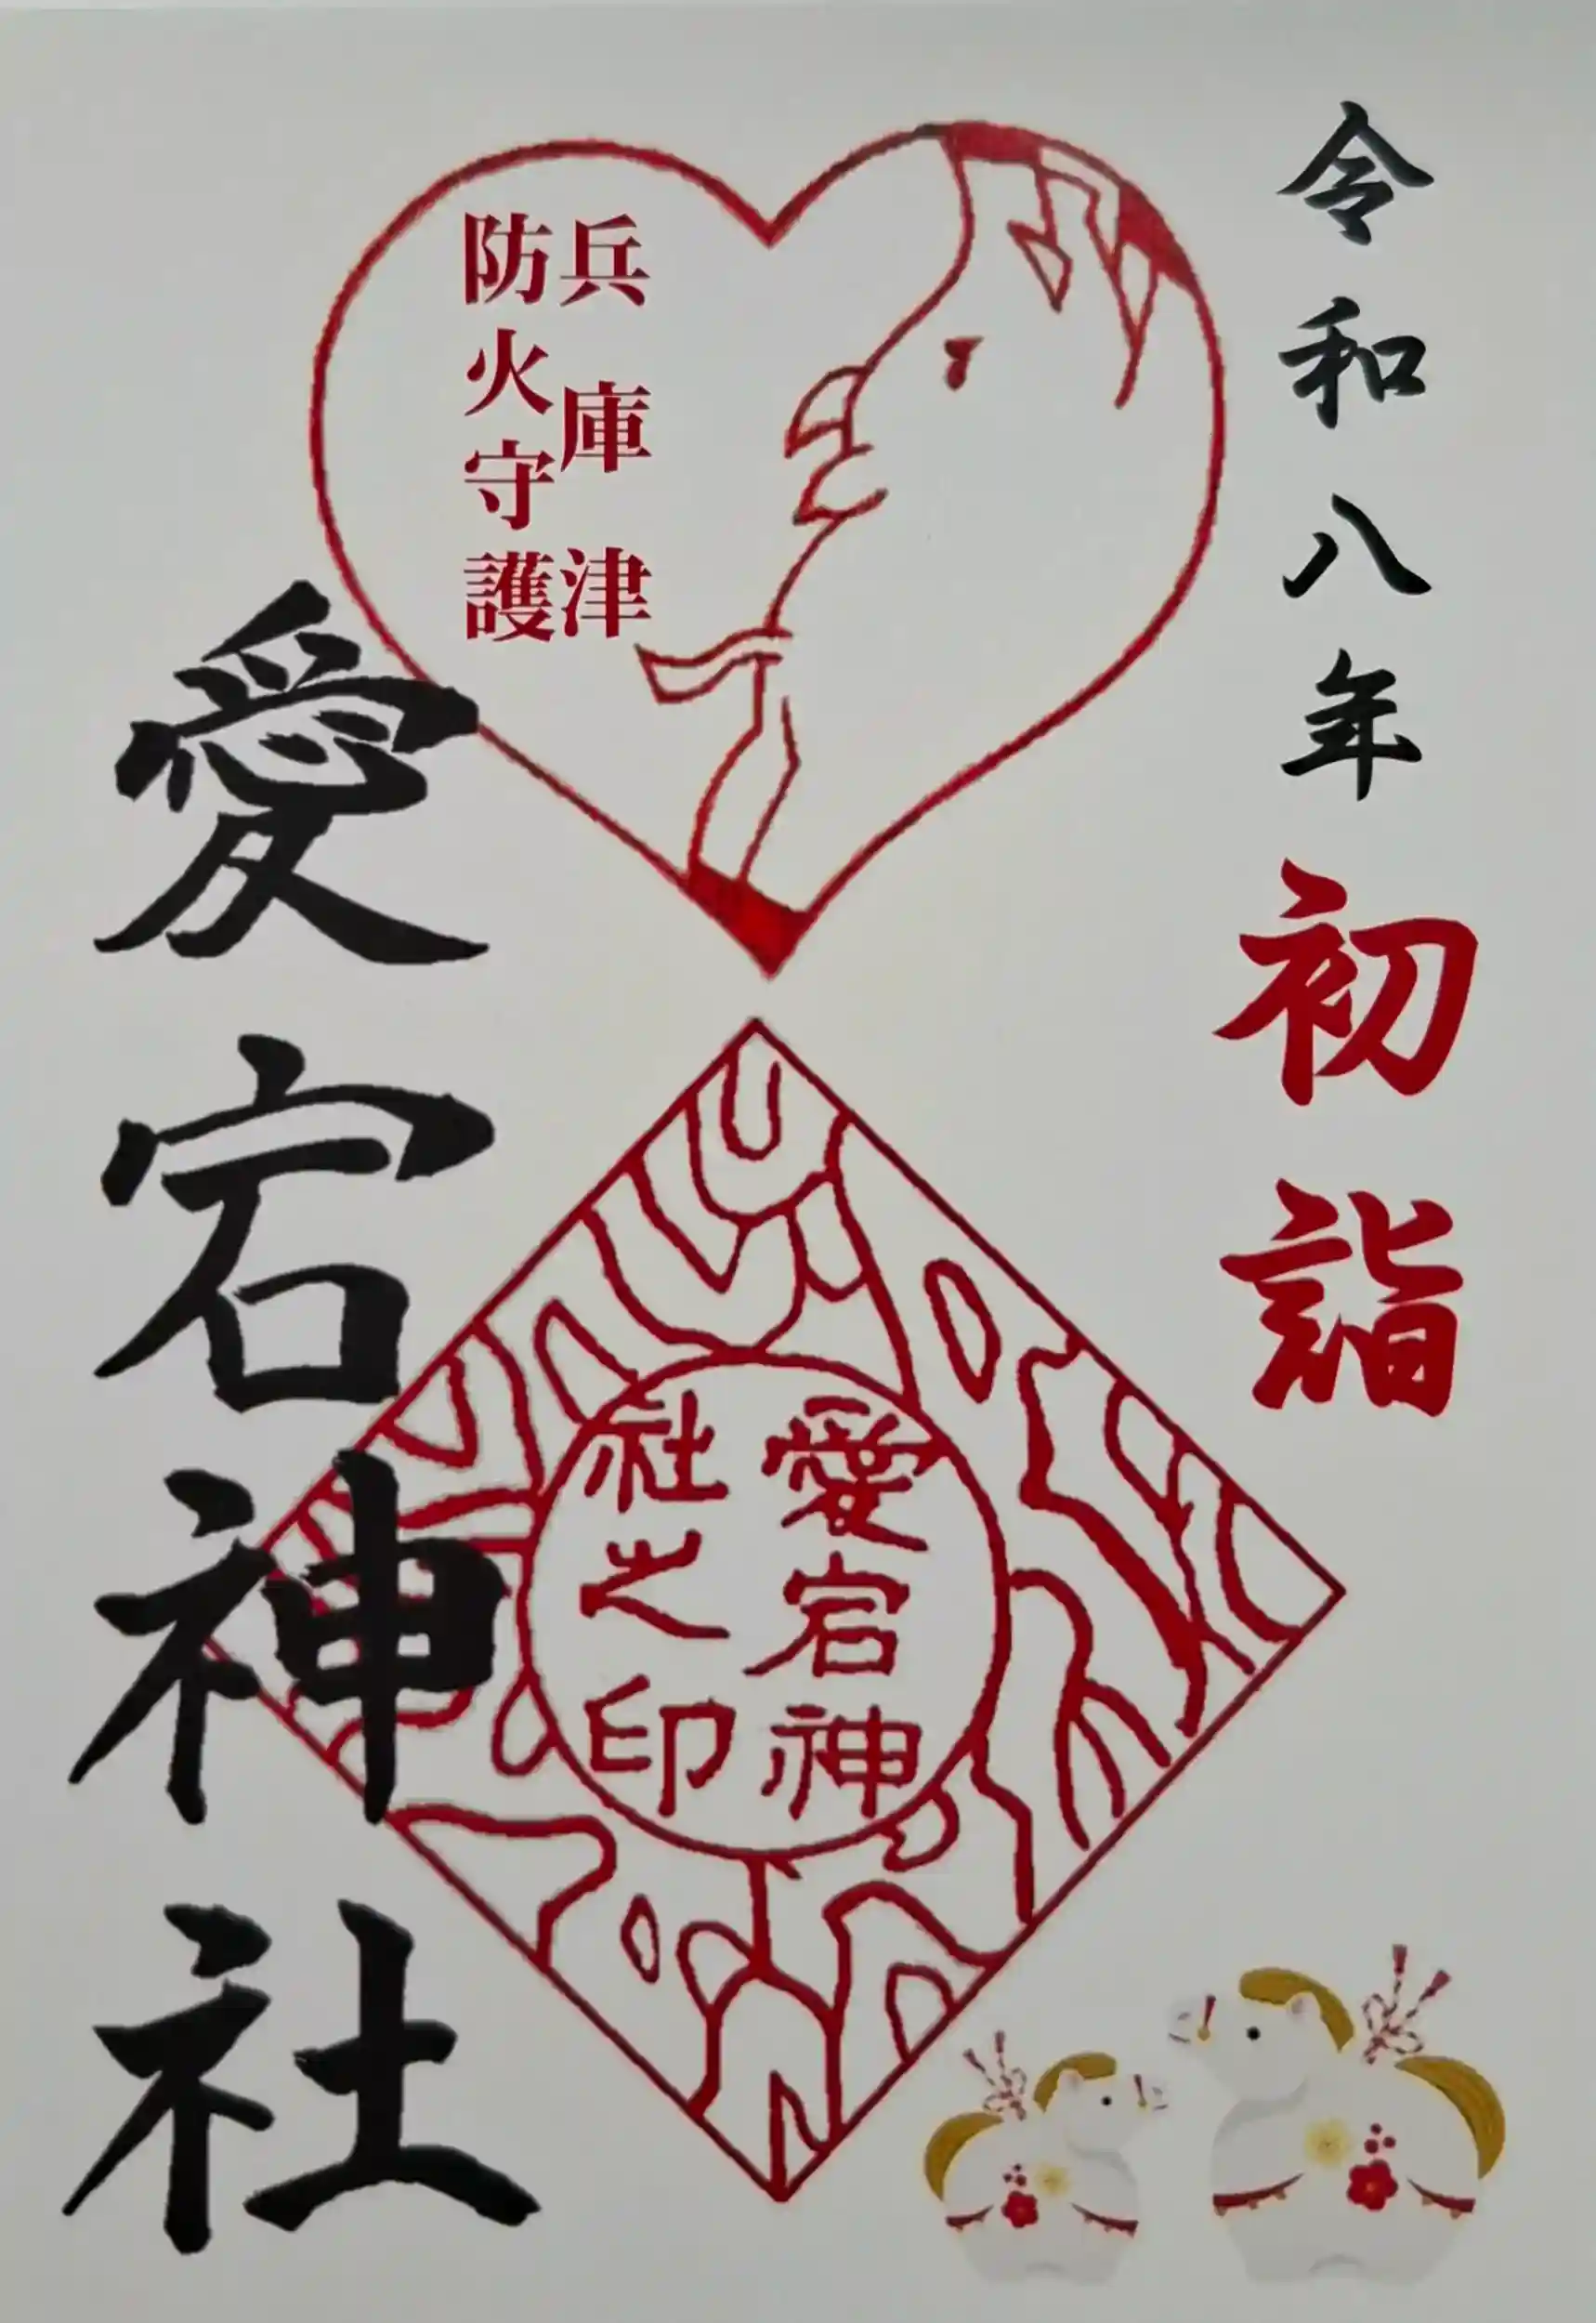 令和八年 初詣
兵庫津
防火守護
愛宕神社
愛宕神
社之印